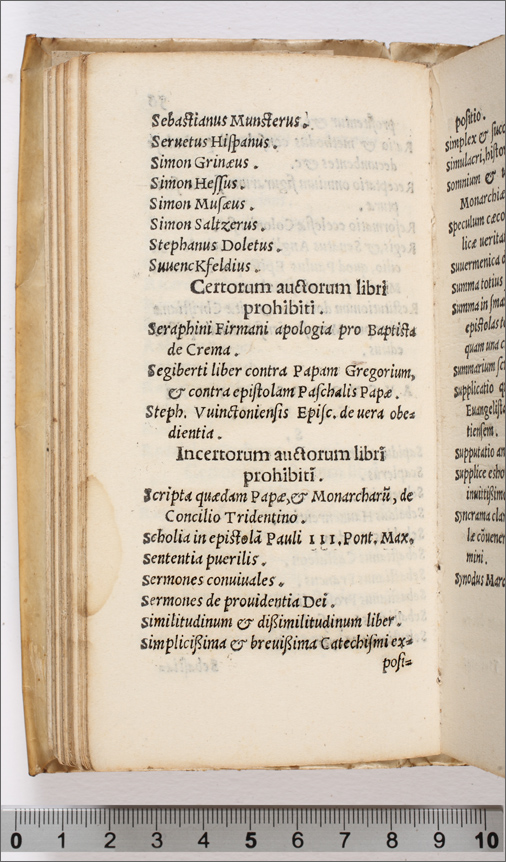 Sebastianus Munsterus.
Seruetus Hispanus.
Simon Grinæus.
Simon Hessus.
Simon Musæus.
Simon Saltzerus.
Stephanus Doletus.
SuuencKfeldius.
Certorum auctorum libri
prohibiti.
Seraphini Firmani apologia pro Baptista
de Crema.
Segiberti liber contra Papam Gregorium,
& contra epistolam Paschalis Papæ.
Steph. Vuinctoniensis Episc. de uera obe=
dientia.
Incertorum auctorum libri
prohibiti.
Scripta quædam Papæ, & Monarcharũ, de
Concilio Tridentino.
Scholia in epistolã Pauli III. Pont. Max,
Sententia puerilis.
Sermones conuiuales.
Sermones de prouidentia Dei.
Similitudinum & dißimilitudinum liber.
Simplicißima & breuißima Catechismi ex=
posi=
positio.
Simplex & succ
Simulacri, histor
Somnium &
Monarchiæ
Speculum cæco
licæ uerita
Suuermerica d
Summa totius
Summa in sma
epistolas
quam una c
Summarium scr
Supplicatio q
Euangelista
tiensem.
Supputatio an
Supplice exho
inuitißimo
Syncrama clar
læ cõuener
mini.
Synodus Marc
0 1 2 3 4 5 6 7 8 9 10